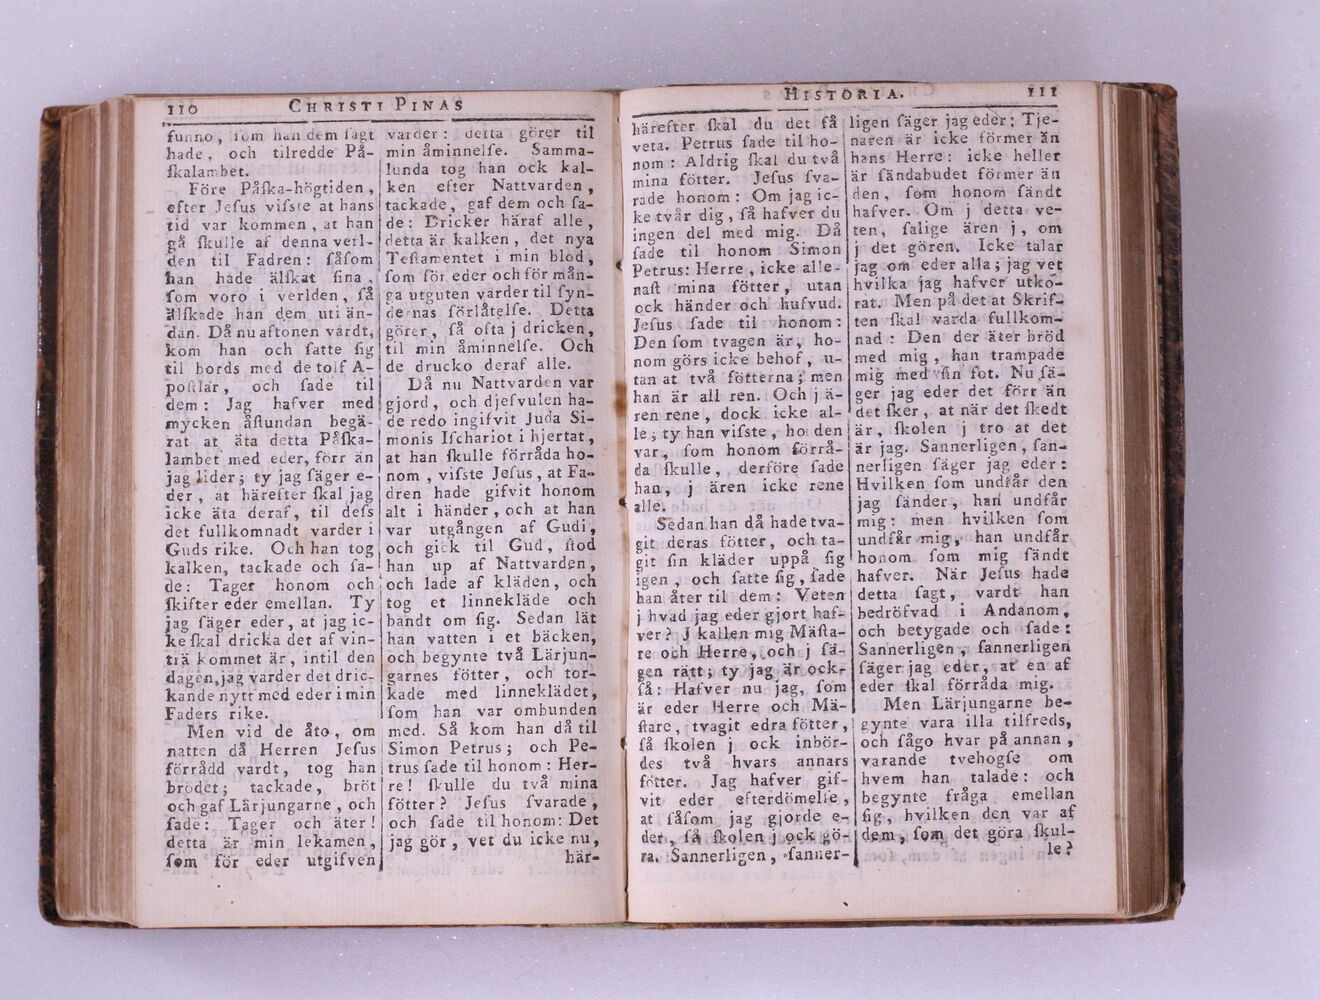 110
CHRISTI PINAS
funno, som han dem ſagt
hade, och tilredde På-
ſkalambet.
Före Påſka-högtiden,
efter Jeſus viſste at hans
tid var kommen, at han
gå ſkulle af denna verl-
den til Fadren: ſåſom
han hade älſkat ſina,
ſom voro i verlden, ſå
älſkade han dem uti än-
dan. Då nu aftonen vardt,
kom han och ſatte ſig
til bords med de tolf A-
poſtlar, och ſade til
dem: Jag hafver med
mycken åſtundan begä-
rat at äta detta Påſka-
lambet med eder, förr än
jag lider; ty jag ſäger e-
der, at härefter ſkal jag
icke äta deraf, til deſs
det fullkomnadt varder i
Guds rike. Och han tog
kalken, tackade och ſa-
de: Tager honom och
ſkifter eder emellan. Ty
jag ſäger eder, at jag ic-
ke ſkal dricka det af vin-
trä kommet är, intil den
dagen, jag varder det dric-
kande nytt med eder i min
Faders rike.
Men vid de åto, om
natten då Herren Jeſus
förrådd vardt, tog han
brödet; tackade, bröt
och gaf Lärjungarne, och
ſade: Tager och äter!
detta är min lekamen,
ſom för eder utgifven
varder: detta görer til
min åminnelſe. Samma-
lunda tog han ock kal-
ken efter Nattvarden,
tackade, gaf dem och ſa-
de: Dricker häraf alle,
detta är kalken, det nya
Teſtamentet i min blod,
ſom för eder och för mån-
ga utguten varder til ſyn-
dernas förlåtelſe. Detta
görer, ſå ofta j dricken,
til min åminnelſe. Och
de drucko deraf alle.
Då nu Nattvarden var
gjord, och djefvulen ha-
de redo ingifvit Juda Si-
monis Iſchariot i hjertat,
at han ſkulle förråda ho-
nom, viſste Jeſus, at Fa-
dren hade gifvit honom
alt i händer, och at han
var utgången af Gudi,
och gick til Gud, ſtod
han up af Nattvarden,
och lade af kläden, och
tog et linnekläde och
bandt om ſig. Sedan lät
han vatten i et bäcken,
och begynte två Lärjun-
garnes fötter, och tor-
kade med linneklädet,
ſom han var ombunden
med. Så kom han då til
Simon Petrus; och Pe-
trus ſade til honom: Her-
re! ſkulle du två mina
fötter? Jeſus ſvarade,
och ſade til honom: Det
jag gör, vet du icke nu,
här-
HISTORIA.
111
härefter ſkal du det få
veta. Petrus ſade til ho-
nom: Aldrig ſkal du två
mina fötter. Jeſus ſva-
rade honom: Om jag ic-
ke tvår dig, ſå hafver du
ingen del med mig. Då
ſade til honom Simon
Petrus: Herre, icke alle-
naſt mina fötter, utan
ock händer och hufvud.
Jeſus ſade til honom:
Den ſom tvagen är, ho-
nom görs icke behof, u-
tan at två fötterna; men
han är all ren. Och j ä-
ren rene, dock icke al-
le; ty han viſste, ho den
var, ſom honom förrå-
da ſkulle, derföre ſade
han, j ären icke rene
alle.
Sedan han då hade tva-
git deras fötter, och ta-
git ſin kläder uppå ſig
igen, och ſatte ſig, ſade
han åter til dem: Veten
j hvad jag eder gjort haf-
ver? J kallen mig Mäſta-
re och Herre, och j ſä-
gen rätt; ty jag är ock
ſå: Hafver nu jag, ſom
är eder Herre och Mä-
ſtare, tvagit edra fötter,
ſå ſkolen j ock inbör-
des två hvars annars
fötter. Jag hafver gif-
vit eder efterdömelſe,
at ſåſom jag gjorde e-
der, ſå ſkolen j ock gö-
ra. Sannerligen, ſanner-
ligen ſäger jag eder: Tje-
naren är icke förmer än
hans Herre: icke heller
är ſändabudet förmer än
den, ſom honom ſändt
hafver. Om j detta ve-
ten, ſalige ären j, om
j det gören. Icke talar
jag om eder alla; jag vet
hvilka jag hafver utko-
rat. Men på det at Skrif-
ten ſkal varda fullkom-
nad: Den der äter bröd
med mig, han trampade
mig med ſin fot. Nu ſä-
ger jag eder det förr än
det ſker, at när det ſkedt
är, ſkolen j tro at det
är jag. Sannerligen, ſan-
nerligen ſäger jag eder:
Hvilken ſom undfår den
jag ſänder, han undfår
mig: men hvilken ſom
undfår mig, han undfår
honom ſom mig ſändt
hafver. När Jeſus hade
detta ſagt, vardt han
bedröfvad i Andanom,
och betygade och ſade:
Sannerligen, ſannerligen
ſäger jag eder, at en af
eder ſkal förråda mig.
Men Lärjungarne be-
gynte vara illa tilfreds,
och ſågo hvar på annan,
varande tvehogſe om
hvem han talade: och
begynte fråga emellan
ſig, hvilken den var af
dem, ſom det göra ſkul-
le?